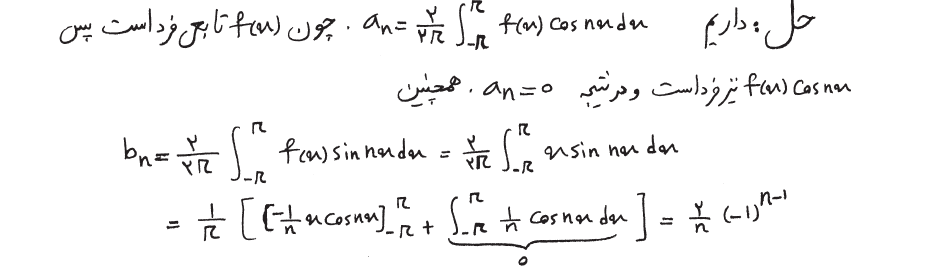 حل: داریم aₙ = ۲/۲π ∫_{-π}^{π} f(x) cos nx dx . چون f(x) تابعی فرد است پس
f(x) cos nx نیز فرد است و در نتیجه aₙ = ۰ . همچنین
bₙ = ۲/۲π ∫_{-π}^{π} f(x) sin nx dx = ۲/۲π ∫_{-π}^{π} x sin nx dx
= ۱/π [ [-۱/n x cos nx]_{-π}^{π} + ∫_{-π}^{π} ۱/n cos nx dx ] = ۲/n (-۱)^{n-۱}
۰